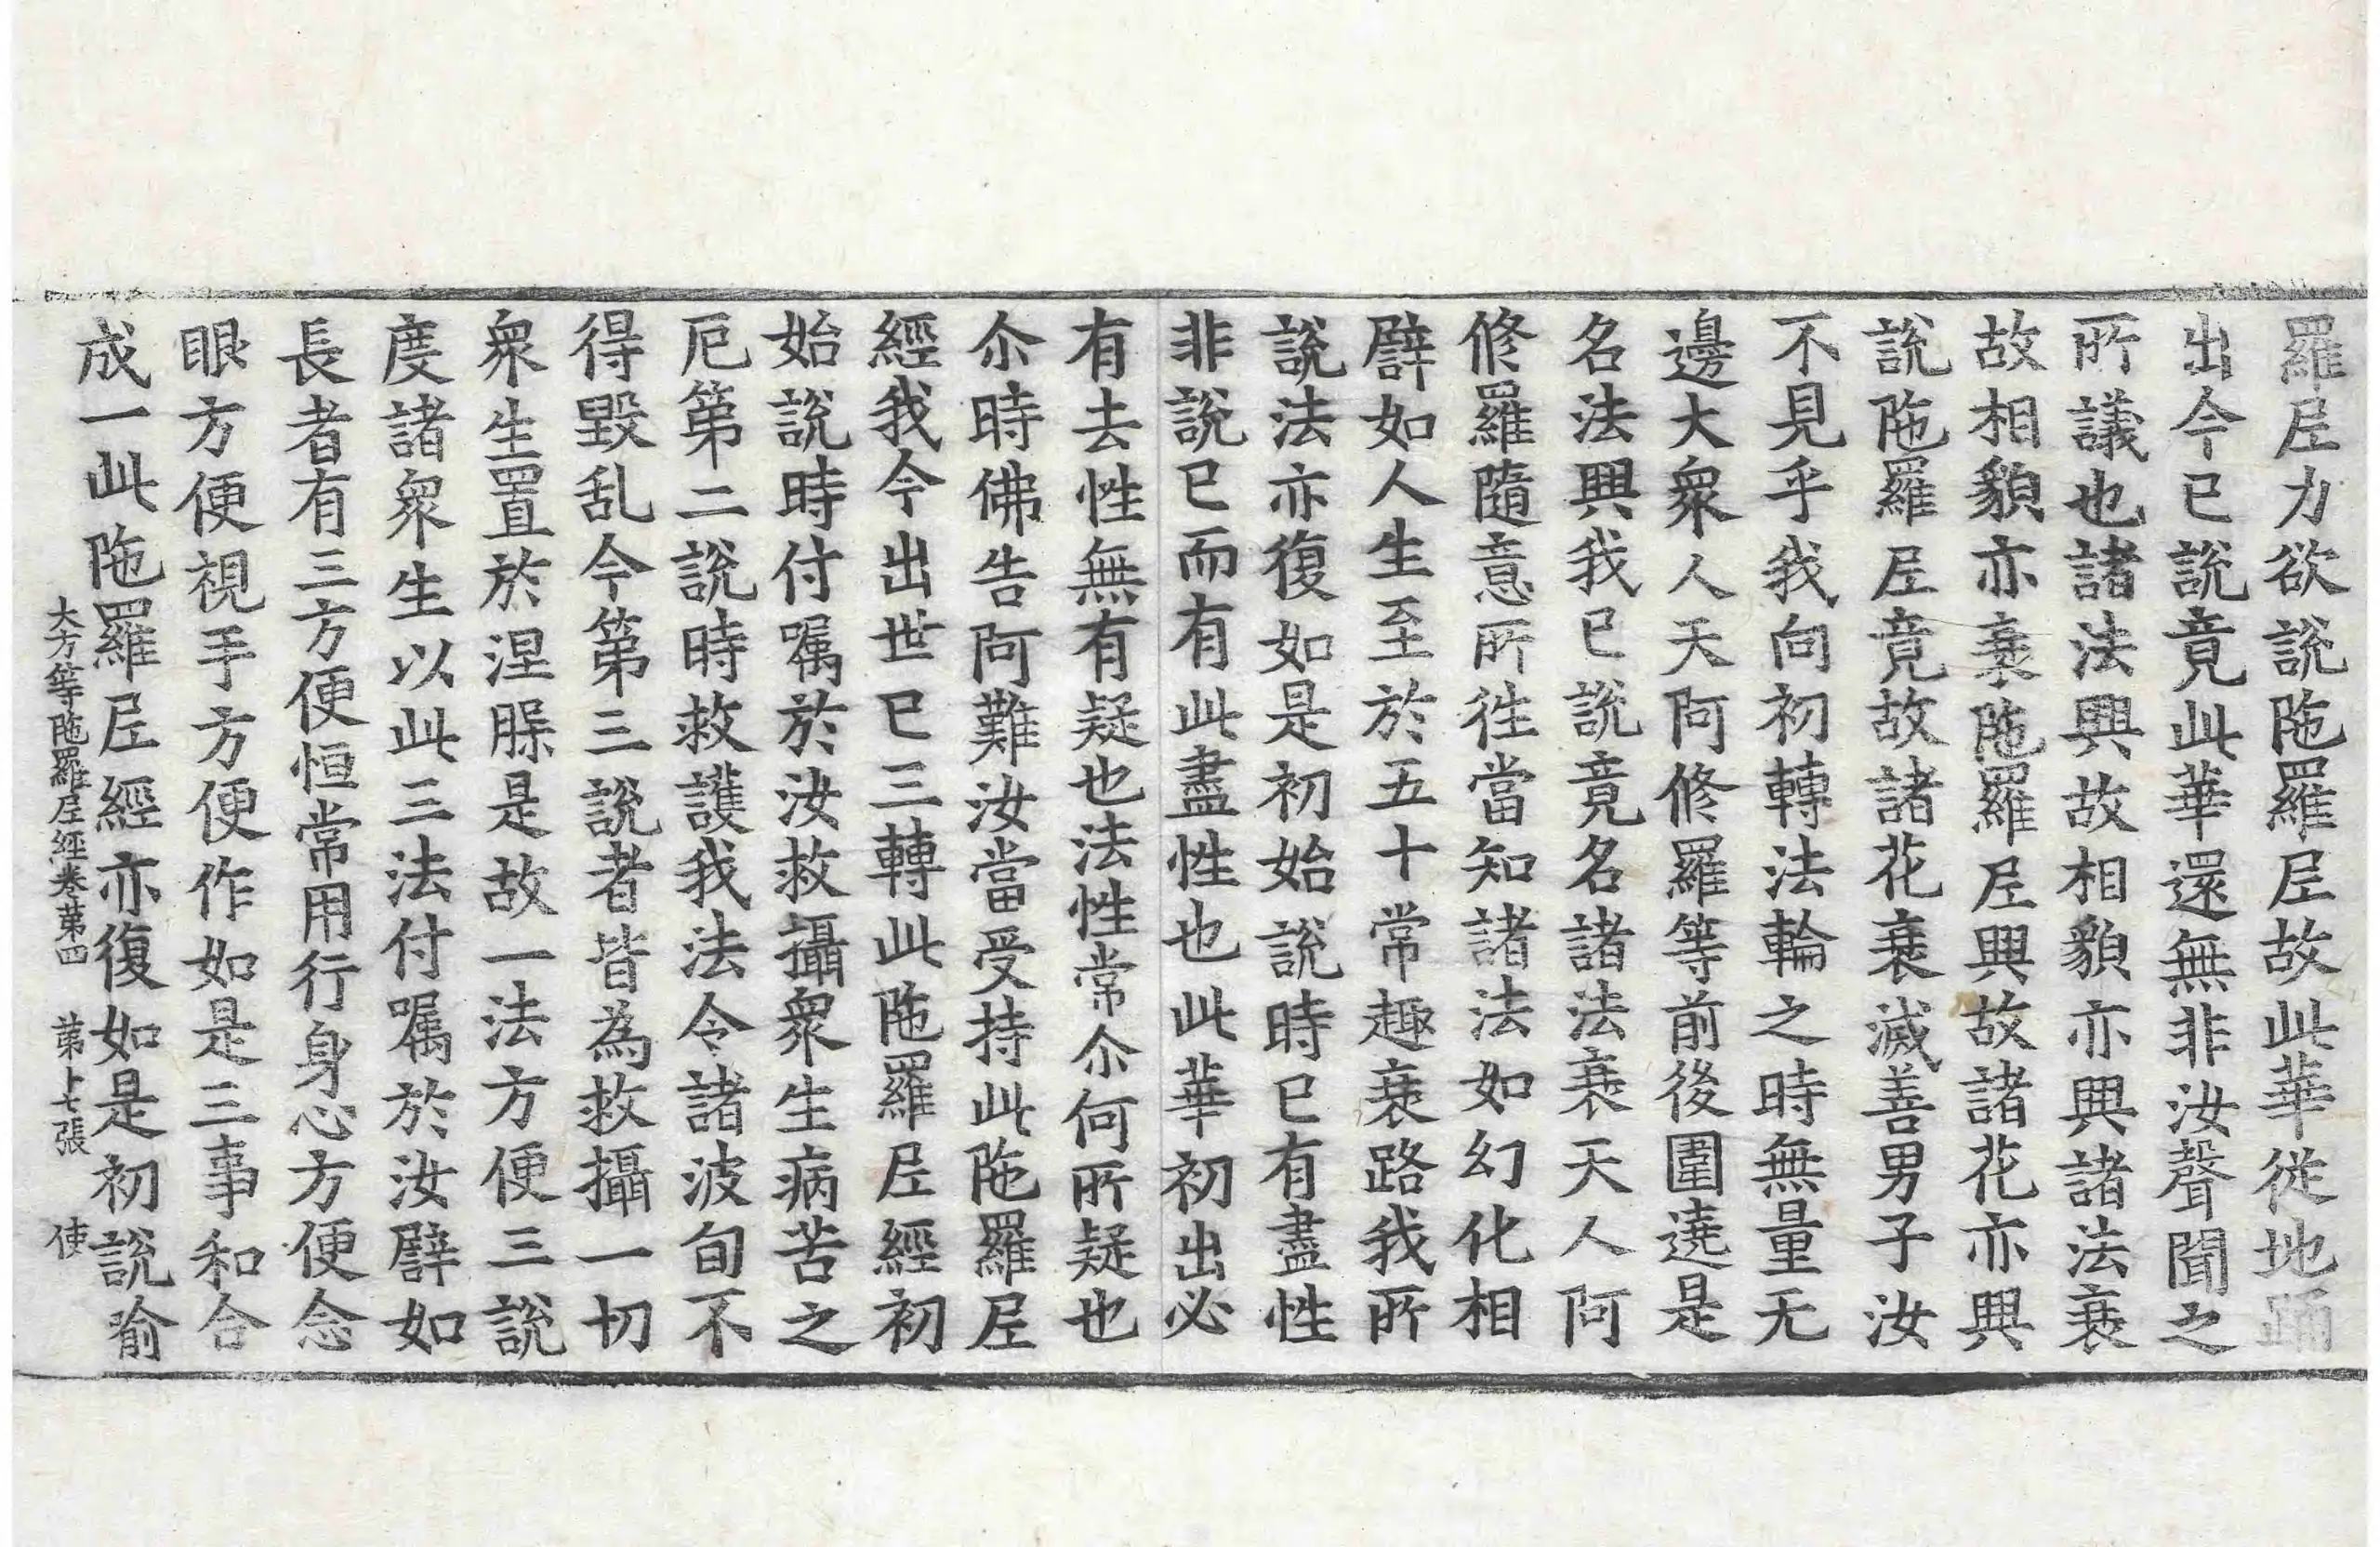 羅𡰱力欲說陁羅𡰱故此華從地踊
出今已說竟此華還無非汝聲聞之
所議也諸法興故相貌亦興諸法衰
故相貌亦衰陁羅𡰱興故諸花亦興
說陁羅𡰱竟故諸花衰滅善男子汝
不見乎我向初轉法輪之時無量无
邊大衆人天阿修羅等前後圍遶是
名法興我已說竟名諸法衰天人阿
修羅隨意所徃當知諸法如幻化相
譬如人生至於五十常趣衰路我所
說法亦復如是初始說時已有盡性
非說已而有此盡性也此華初出必
有去性無有疑也法性常尒何所疑也
尒時佛告阿難汝當受持此陁羅𡰱
經我今出世已三轉此陁羅𡰱經初
始說時付嘱於汝救攝衆生病苦之
厄第二說時救護我法令諸波旬不
得毀乱今第三說者皆為救攝一切
衆生置於涅槃是故一法方便三說
度諸衆生以此三法付嘱於汝譬如
長者有三方便恒常用行身心方便念
眼方便視手方便作如是三事和合
成一此陁羅𡰱經亦復如是初說喻
大方等陁羅𡰱經卷第四　第十七張　使